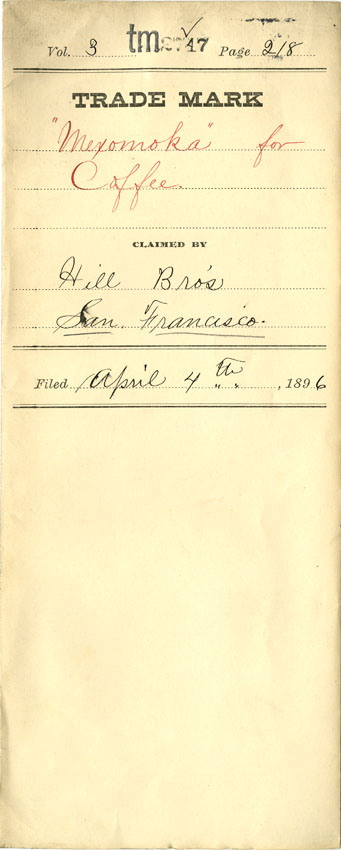 Vol. 3 tm 47 Page 218
TRADE MARK
"Mexomoka" for
Coffee.
CLAIMED BY
Hill Bro's
San Francisco.
Filed April 4th, 1896